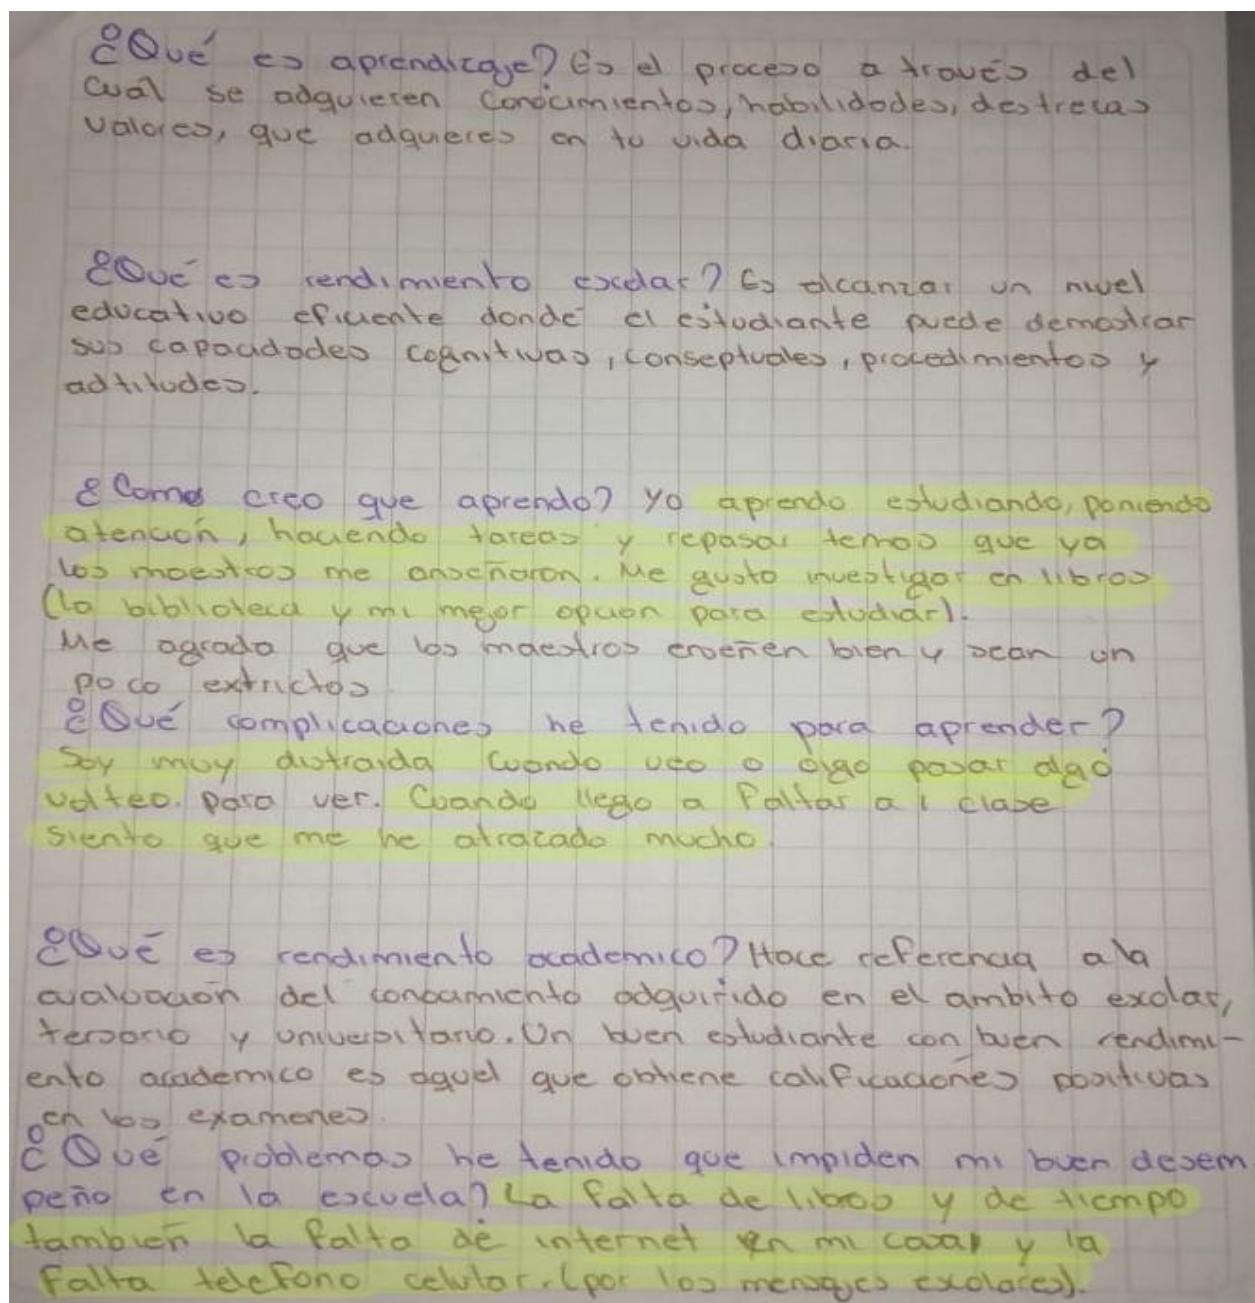 ¿Qué es aprendizaje? Es el proceso a través del
cual se adquieren conocimientos, habilidades, destrezas
valores, que adquieres en tu vida diaria.
¿Qué es rendimiento escolar? Es alcanzar un nivel
educativo eficiente donde el estudiante puede demostrar
sus capacidades cognitivas, conseptuales, procedimientos y
adtitudes.
¿Como creo que aprendo? Yo aprendo estudiando, poniendo
atención, haciendo tareas y repasar temas que ya
los maestros me enseñaron. Me gusta investigar en libros
(la biblioteca y mi mejor opcion para estudiar).
Me agrada que los maestros enseñen bien y sean un
poco extrictos
¿Qué complicaciones he tenido para aprender?
Soy muy distraida cuando veo o oigo pasar algo
volteo para ver. Cuando llego a faltar a 1 clase
siento que me he atrazado mucho.
¿Qué es rendimiento academico? Hace referencia a la
evaluación del conocimiento adquirido en el ambito exolar,
tersario y universitario. Un buen estudiante con buen rendimi-
ento academico es aquel que obtiene calificaciones positivas
en los examenes.
¿Qué problemas he tenido que impiden mi buen desem
peño en la escuela? La falta de libros y de tiempo
también la falta de internet en mi casa y la
falta telefono celular. (por los mensajes exolares).